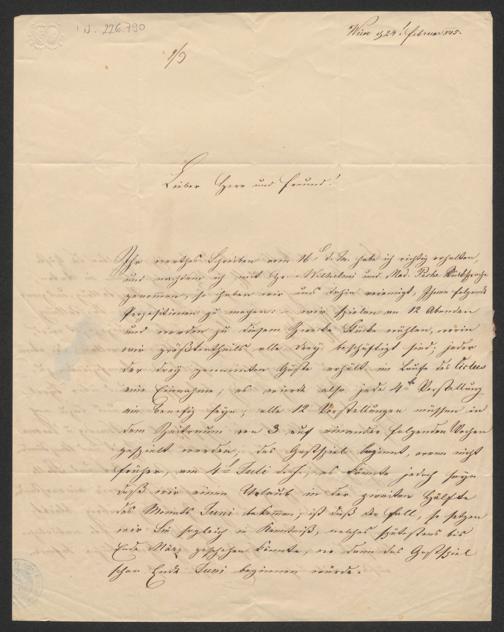 I.N. 226.790
Wien d 24 Februar 845.
1/3
Lieber Herr und Freund!
Ihr werthes Schreiben vom 16. d. M. habe ich richtig erhalten,
und nachdem ich mit Hr. und Mad. Rücksprache
genommen, so haben wir uns dahin vereinigt, Ihnen folgende
Propositionen zu machen: wir spielen an 12 Abenden
und werden zu diesem Zwecke Stücke wählen, worin
wir größtentheils alle drey beschäftigt sind; jeder
der drey genannten Gäste erhält im Laufe des Ciclus
eine Einnahme, es würde also jede 4te Vorstellung
ein Benefiz seyn; alle 12 Vorstellungen müssen in
dem Zeitraum von 3 auf einander folgenden Wochen
gespielt werden; das Gastspiel beginnt, wenn nicht
früher, am 4t Juli d. J.; es könnte jedoch seyn
daß wir einen Urlaub in der zweiten Hälfte
des Monats Juni bekommen; ist dieß der Fall, so setzen
wir Sie sogleich in Kenntniß, welches spätestens bis
Ende März geschehen könnte, wo dann das Gastspiel
schon Ende Juni beginnen würde.